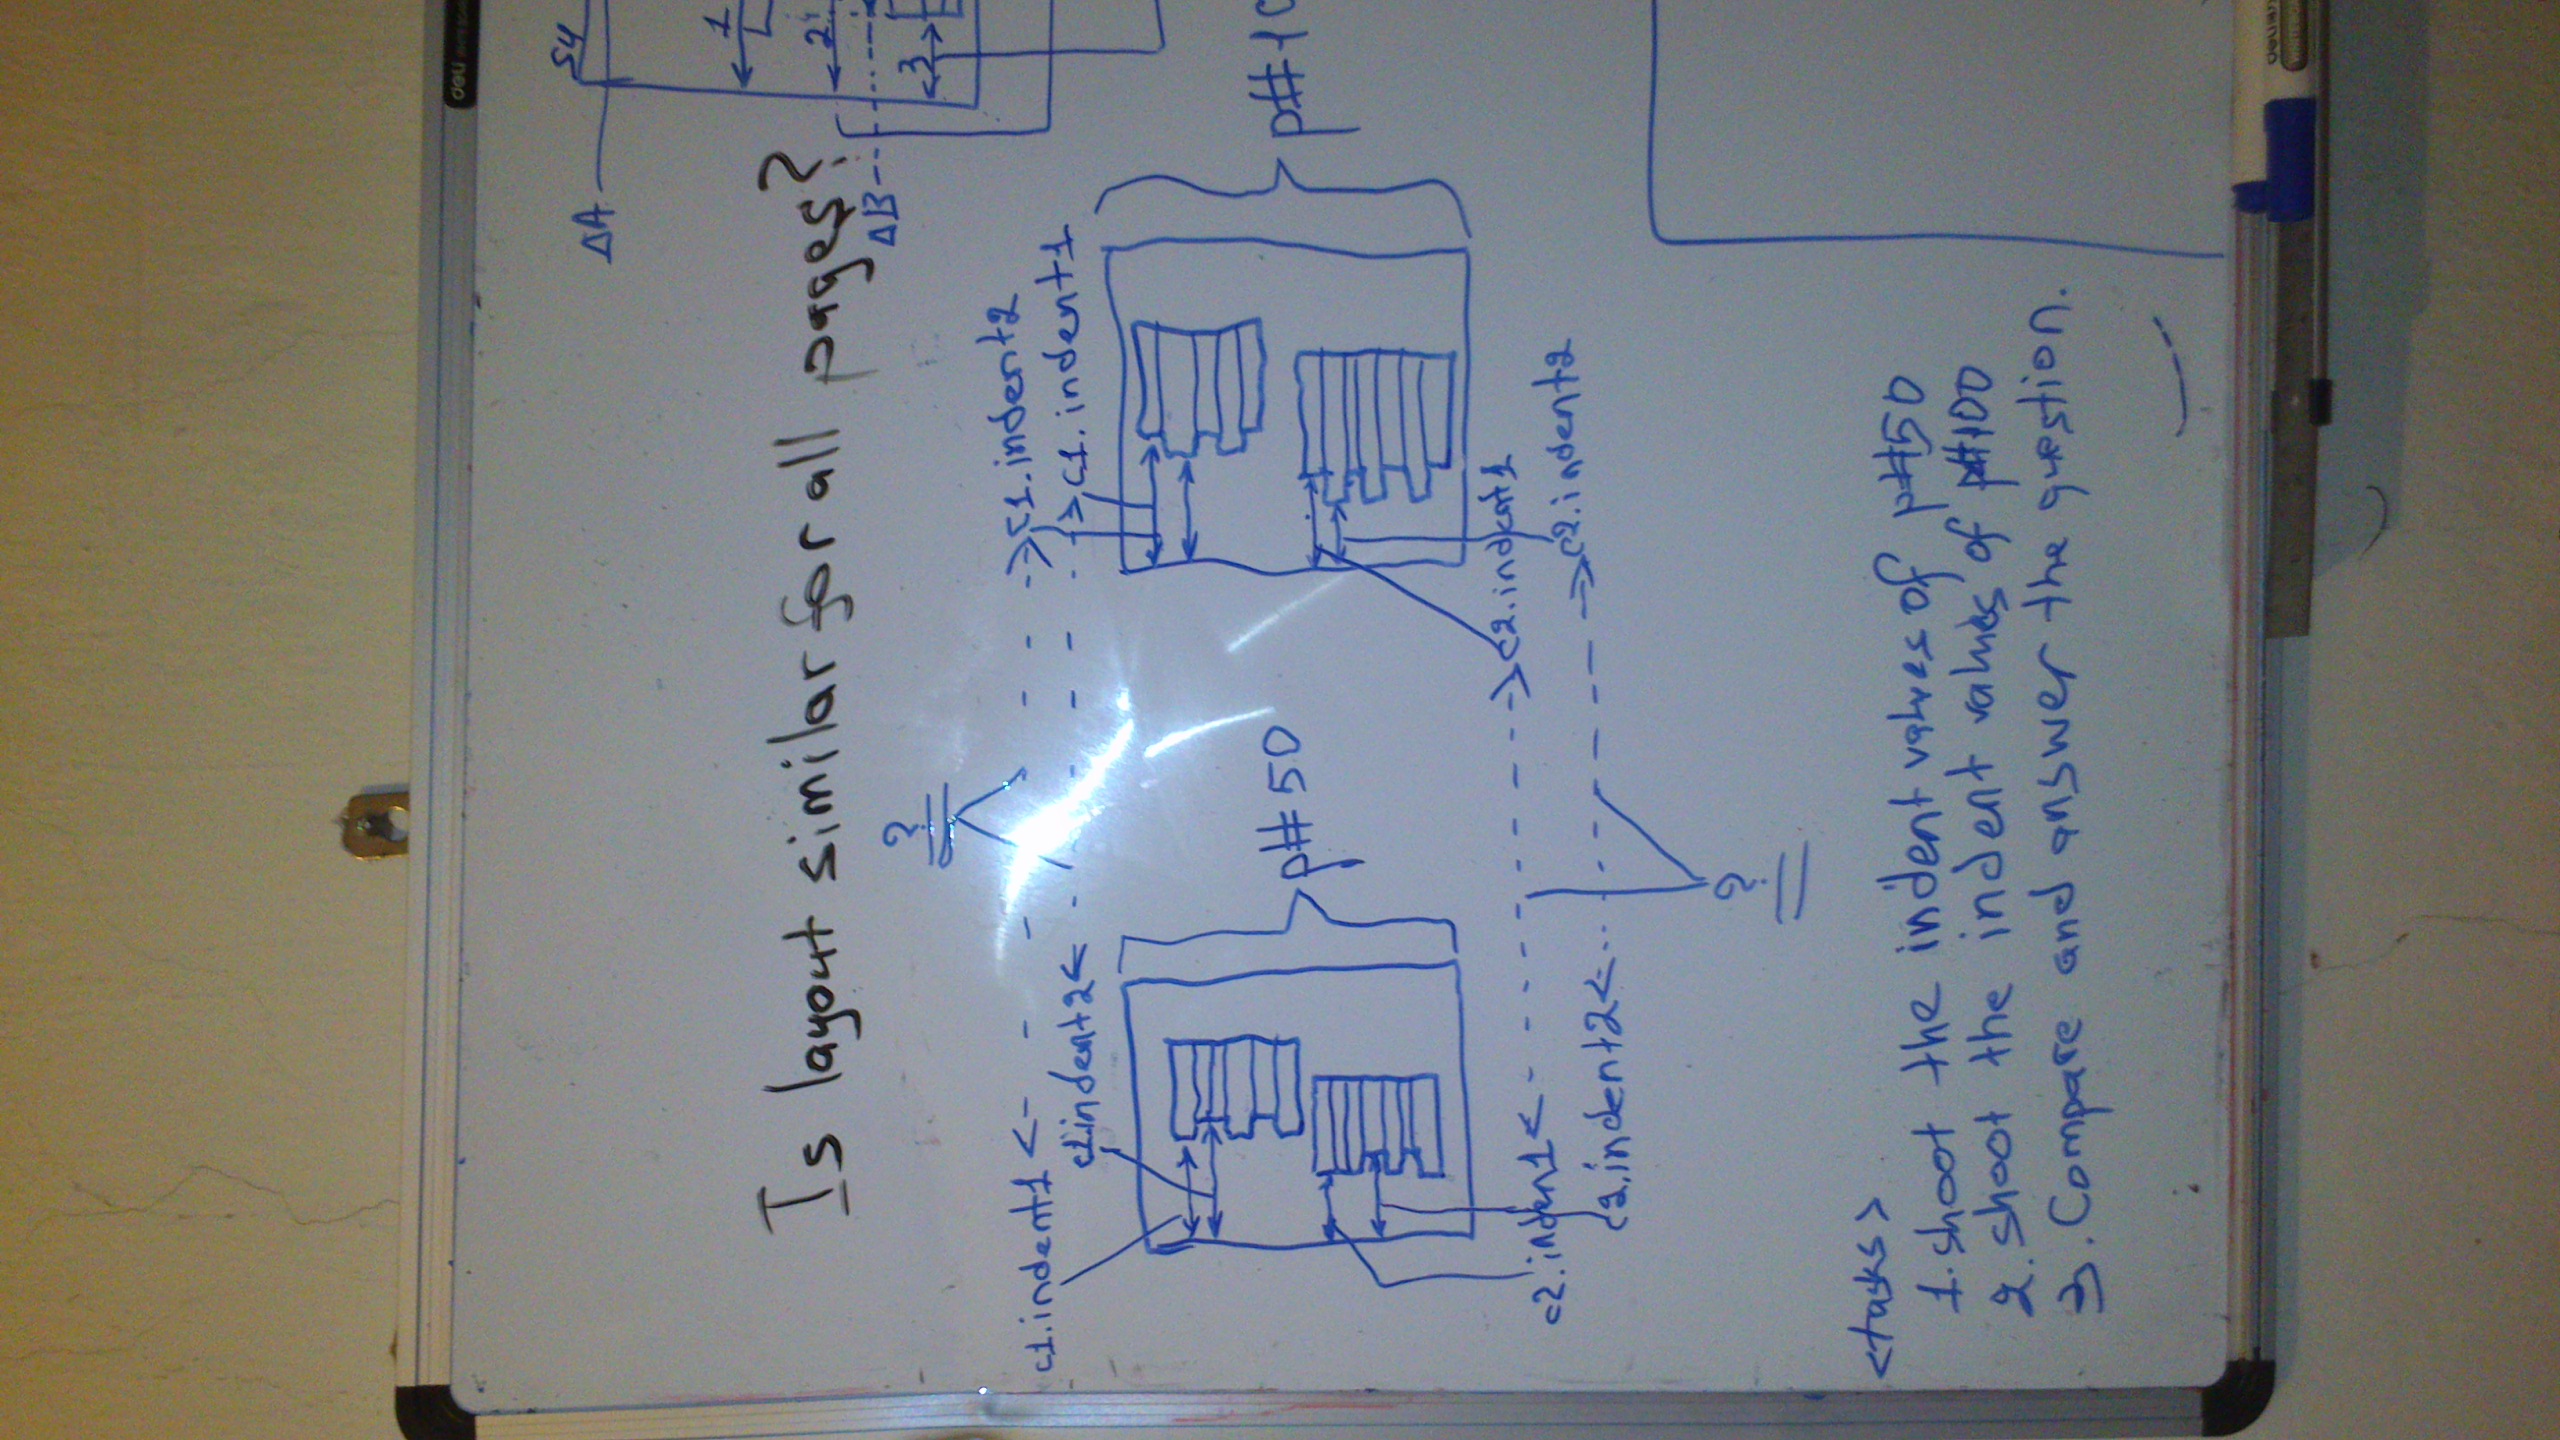 deli
S4
ΔA
1
Is layout similar for all pages?
2
ΔB
3
?
c1.indent1
c1.indent2
c1.indent2
c1.indent1
p#50
p#10
c2.inden1
c2.indent1
c2.indent2
c2.indent2
?
<tasks>
1. shoot the indent values of p#50
2. shoot the indent values of p#100
3. Compare and answer the question.